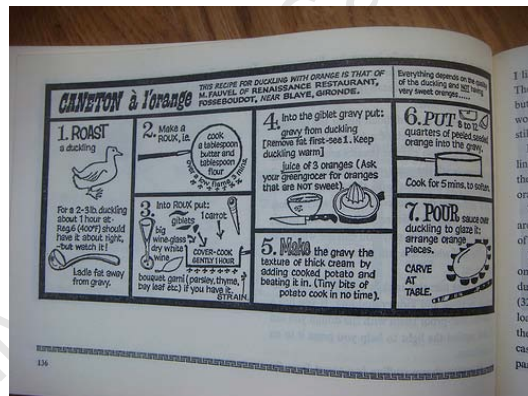 CANETON à l'orange
THIS RECIPE FOR DUCKLING WITH ORANGE IS THAT OF
M. FAUVEL OF RENAISSANCE RESTAURANT,
FOSSEBOUDOT, NEAR BLAYE, GIRONDE.
Everything depends on the quality
of the duckling and NOT having
very sweet oranges.....
1. ROAST
a duckling
For a 2-3 lb. duckling
about 1 hour at
Reg 6 (400°F) should
have it about right,
-but watch it!
Ladle fat away
from gravy.
2. Make a
ROUX, i.e.
cook
a tablespoon
butter and
tablespoon
flour
over a low flame, 3 mins.
3. Into ROUX put:
giblets
1 carrot
big
wine-glass
dry white
wine
COVER-COOK
GENTLY 1 HOUR
bouquet garni (parsley, thyme,
bay leaf etc.) if you have it.
STRAIN.
4. Into the giblet gravy put:
gravy from duckling
[Remove fat first-see 1. Keep
duckling warm]
juice of 3 oranges (Ask
your greengrocer for oranges
that are NOT sweet)
5. Make the gravy the
texture of thick cream by
adding cooked potato and
beating it in. (Tiny bits of
potato cook in no time).
6. PUT 8 to 12
quarters of peeled, seeded
orange into the gravy.
Cook for 5 mins, to soften.
7. POUR sauce over
duckling to glaze it:
arrange orange
pieces.
CARVE
AT
TABLE.
136